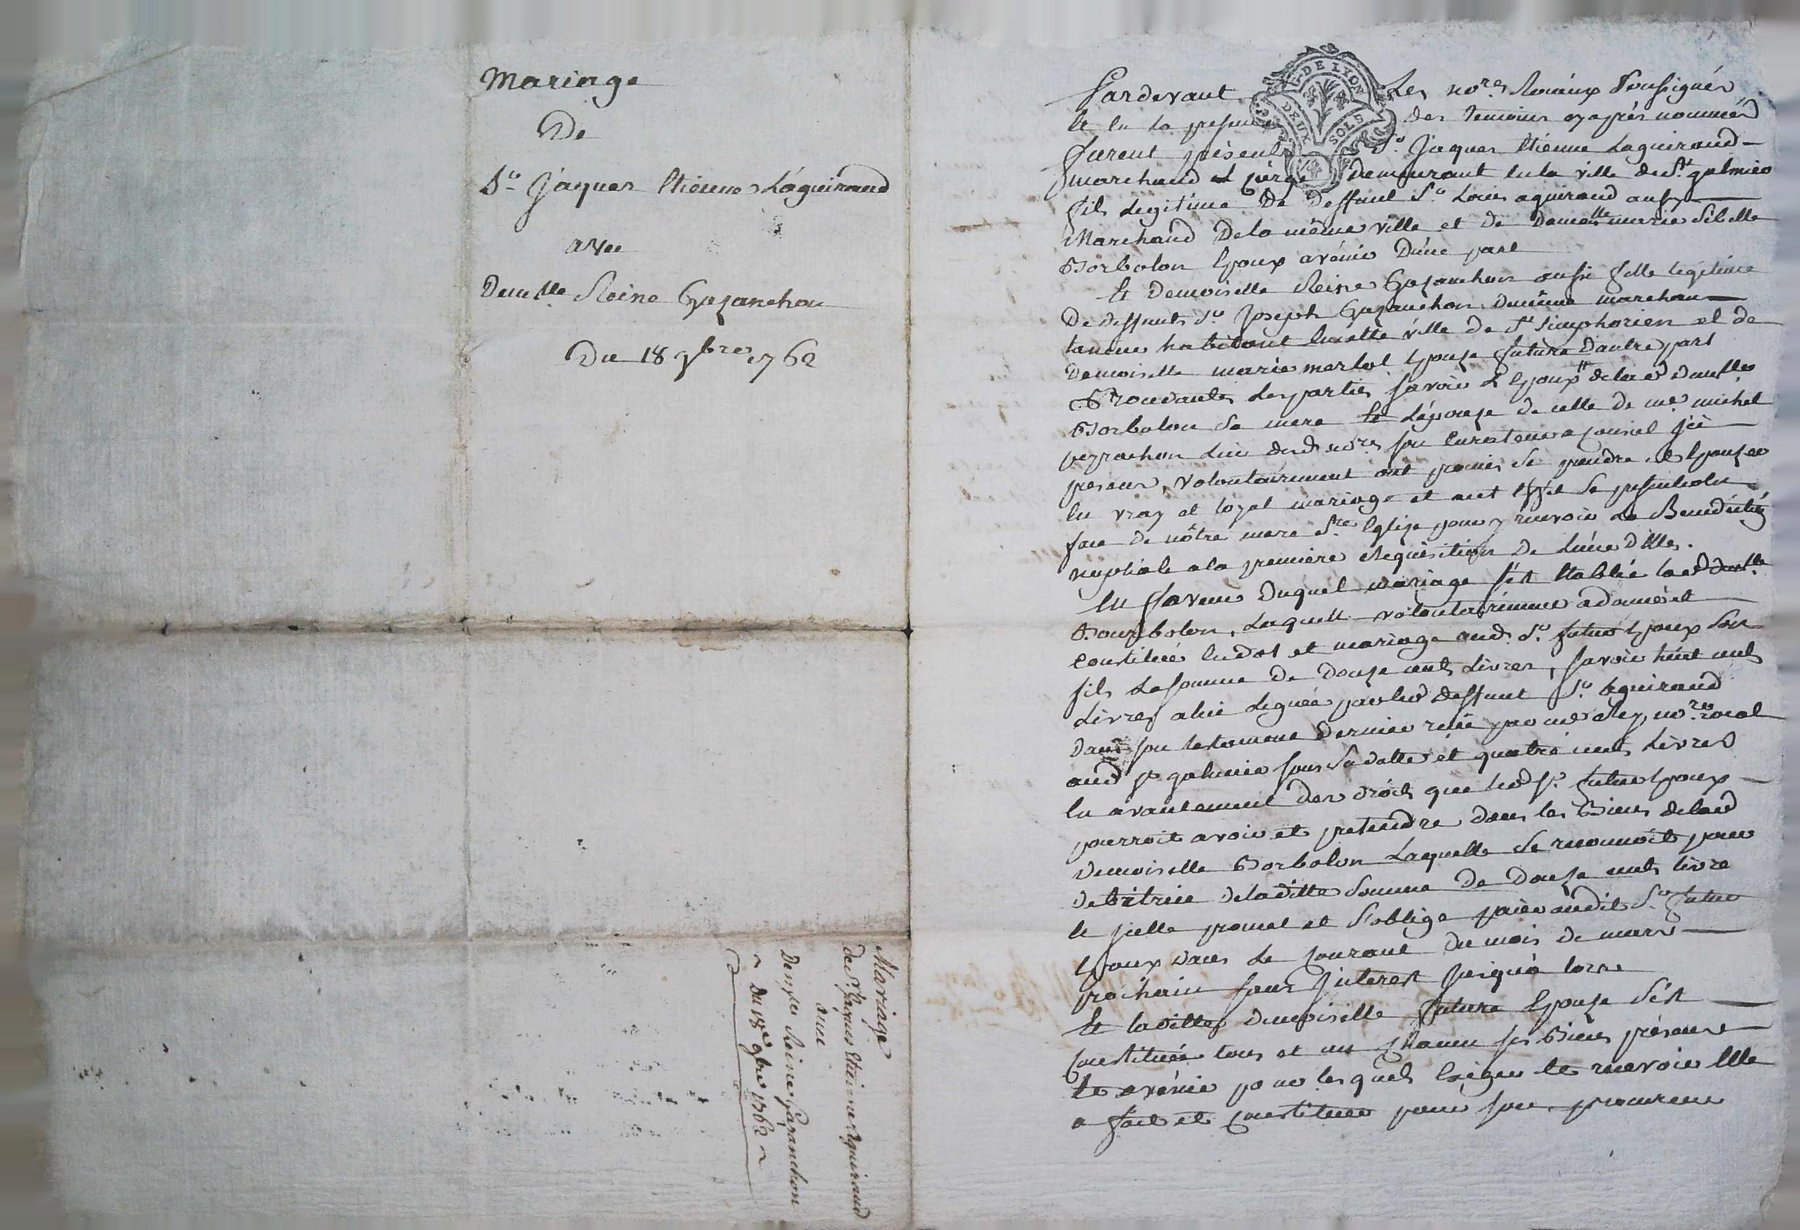 Mariage
De
Sr. Jaques Etienne Laguiraud
avec
Demelle Reine Gazanchon
Du 18 9bre 1762
Mariage
de Sr. Jaques Etienne Aguiraud
avec
Demelle Reine Gazanchon
Du 18e 9bre 1762
G. DE LYON
DEUX SOLS
Pardevant Les nores Royaux soussignés
et en la presence des temoins cy après nommés
furent présents Sr. Jaques Etienne Laguiraud
marchand demeurant en la ville de St. galmier
fils legitime de deffunt Sr. Louis aguiraud aussy
Marchand de la même ville et de Demelle marie Sibelle
Borbolon Epoux avenir d'une part
Et Demoiselle Reine Gazanchon aussi fille legitime
De deffunt Sr. Joseph Gazanchon marchand
taneur habitant ville de St. simphorien et de
Demoiselle marie martel Epouse future d'autre part
Procedantes les parties savoir L'Epoux de lad. Demelle
Borbolon sa mere et L'épouse de celle de me. michel
peyrachon L'un desd. nores son Curateur
present, volontairement ont promis se prendre et Epouser
en vray et loyal mariage et se presenter
face de nôtre mere Ste Eglise pour y recevoir La Benediction
nuptiale a la premiere Requisition de L'une d'Elles.
En faveur Duquel mariage s'est Etablie lad. Demelle
Bourbolon, Laquelle volontairement a donné et
constitué En dot et mariage aud. Sr. futur Epoux son
fils La somme de Douze cents Livres, savoir huit cents
Livres a lui Leguée par led. deffunt Sr. aguiraud
Dans son testament dernier reçu par me. nore roial
aud. St. galmier sous sa datte et quatre cents Livres
En avancement des droits que led. Sr. futur Epoux
pourroit avoir et pretendre dans les Biens de lad.
Demoiselle Borbolon Laquelle se reconnoit pour
debitrice de la ditte somme de Douze cents livre
et icelle promet et s'oblige païer audit Sr. futur
Epoux dans Le Courant du mois de mars
prochain sans Interest jusqu'a lors
Et laditte demoiselle future Epouse s'est
Constituée tous et un chacun ses Biens présents
et avenir pour lesquels Exiger et recevoir Elle
a fait et Constitué pour son procureur